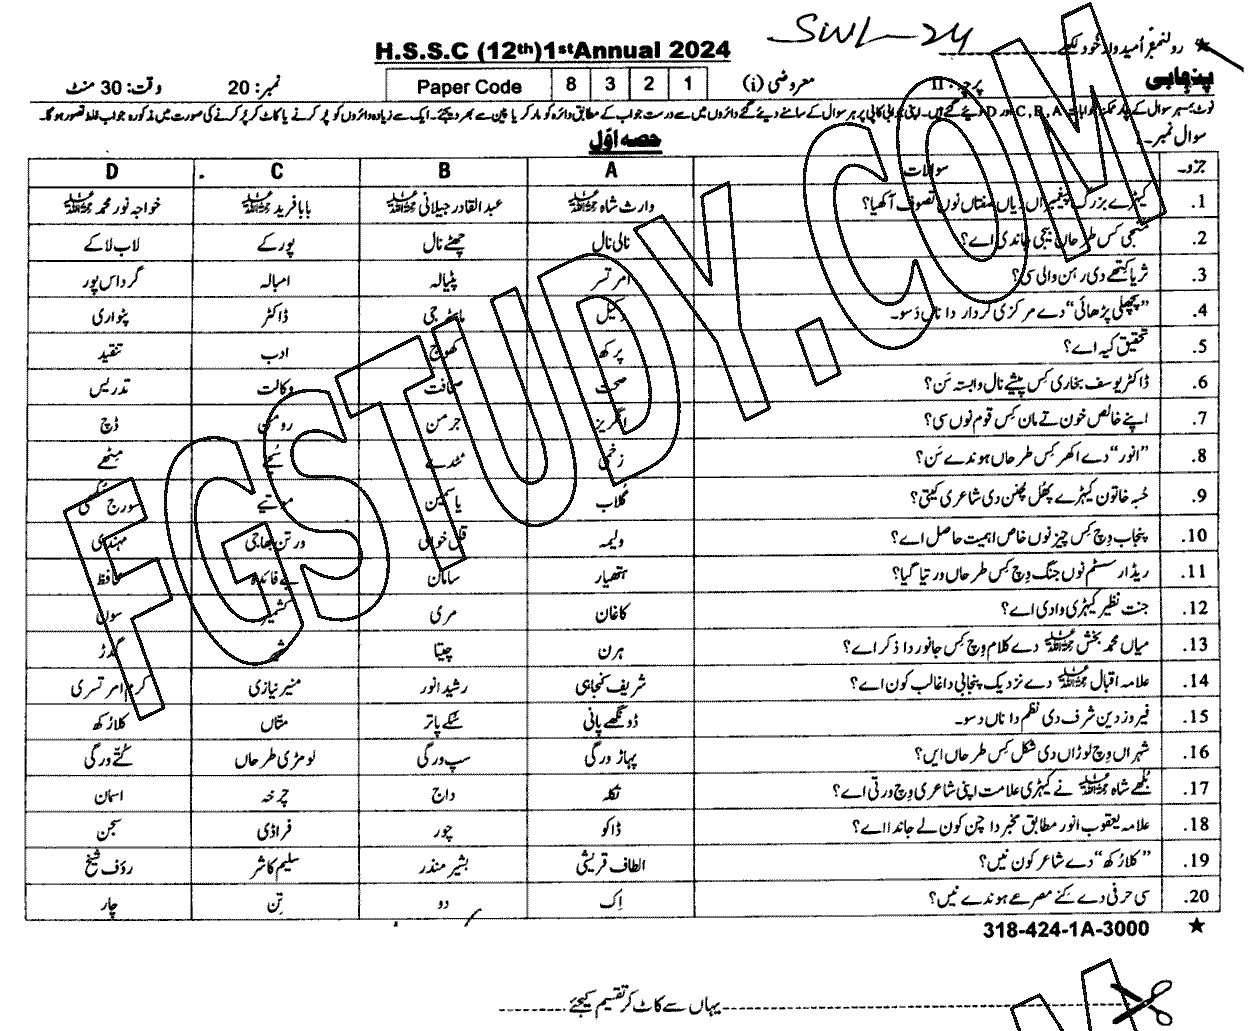 SWL-24
★ رولنمبر اُمیدوار خود لکھے
H.S.S.C (12th)1stAnnual 2024
پنجابی پرچہ: II معروضی (i) Paper Code 8 3 2 1 نمبر: 20 وقت: 30 منٹ
نوٹ: ہر سوال کے چار ممکنہ جوابات A ، B ، C اور D دیئے گئے ہیں۔ اپنی جوابی کاپی پر ہر سوال کے سامنے دیئے گئے دائروں میں سے درست جواب کے مطابق دائرہ کو مارکر یا پین سے بھر دیجئے۔ ایک سے زیادہ دائروں کو پُر کرنے یا کاٹ کر پُر کرنے کی صورت میں مذکورہ جواب غلط تصور ہوگا۔
سوال نمبر۔
حصہ اوّل
جزو۔ سوالات A B C D
1. کیہڑے بزرگ پیغمبراں دیاں صفتاں نوں تصوف آکھیا؟ وارث شاہ عبدالقادر جیلانی بابا فرید خواجہ نور محمد
2. کس طرحاں بیجی جاندی اے؟ نالی نال چھٹے نال پورکے لاب لاکے
3. ثریا کتھے دی رہن والی سی؟ امرتسر پٹیالہ امبالہ گرداس پور
4. "پچھلی پڑھائی" دے مرکزی کردار دا ناں دسو۔ وکیل ماسٹر جی ڈاکٹر پٹواری
5. تحقیق کیہ اے؟ پرکھ کھوج ادب تنقید
6. ڈاکٹر یوسف بخاری کس پیشے نال وابستہ سَن؟ صحت صحافت وکالت تدریس
7. اپنے خالص خون تے مان کِس قوم نوں سی؟ انگریز جرمن رومن ڈچ
8. "انور" دے اکھر کِس طرحاں ہوندے سَن؟ زخمی ٹنڈے سُچے مِٹھے
9. حُبہ خاتون کیہڑے پھل چُنن دی شاعری کیتی؟ گلاب یاسمین موتیے سورج مکھی
10. پنجاب وِچ کِس چیز نوں خاص اہمیت حاصل اے؟ ولیمہ قل خوانی ورتن بھاجی مہندی
11. ریڈار سسٹم نوں جنگ وِچ کس طرحاں ورتیا گیا؟ ہتھیار سامان بے فائدہ محافظ
12. جنت نظیر کیہڑی وادی اے؟ کاغان مری کشمیر سون
13. میاں محمد بخش دے کلام وِچ کِس جانور دا ذکر اے؟ ہرن چیتا شیر گدڑ
14. علامہ اقبال دے نزدیک پنجابی دا غالب کون اے؟ شریف کنجاہی رشید انور منیر نیازی کرم امرتسری
15. فیروز دین شرف دی نظم دا ناں دسو۔ ڈونگھے پانی سُکے پاتر متّاں کلا رُکھ
16. شہراں وِچ لوڑاں دی شکل کِس طرحاں ایں؟ پہاڑ ورگی سپ ورگی لومڑی طرحاں کُتّے ورگی
17. بُلھے شاہ نے کیہڑی علامت اپنی شاعری وِچ ورتی اے؟ تکلہ داج چرخہ اسمان
18. علامہ یعقوب انور مطابق مخبر دا چن کون لے جاندا اے؟ ڈاکو چور فراڈی سجن
19. "کلا رُکھ" دے شاعر کون نیں؟ الطاف قریشی بشیر منذر سلیم کاشر رؤف شیخ
20. سی حرفی دے کِنے مصرعے ہوندے نیں؟ اِک دو تِن چار
318-424-1A-3000 ★
یہاں سے کاٹ کر تقسیم کیجئے
FGSTUDY.COM